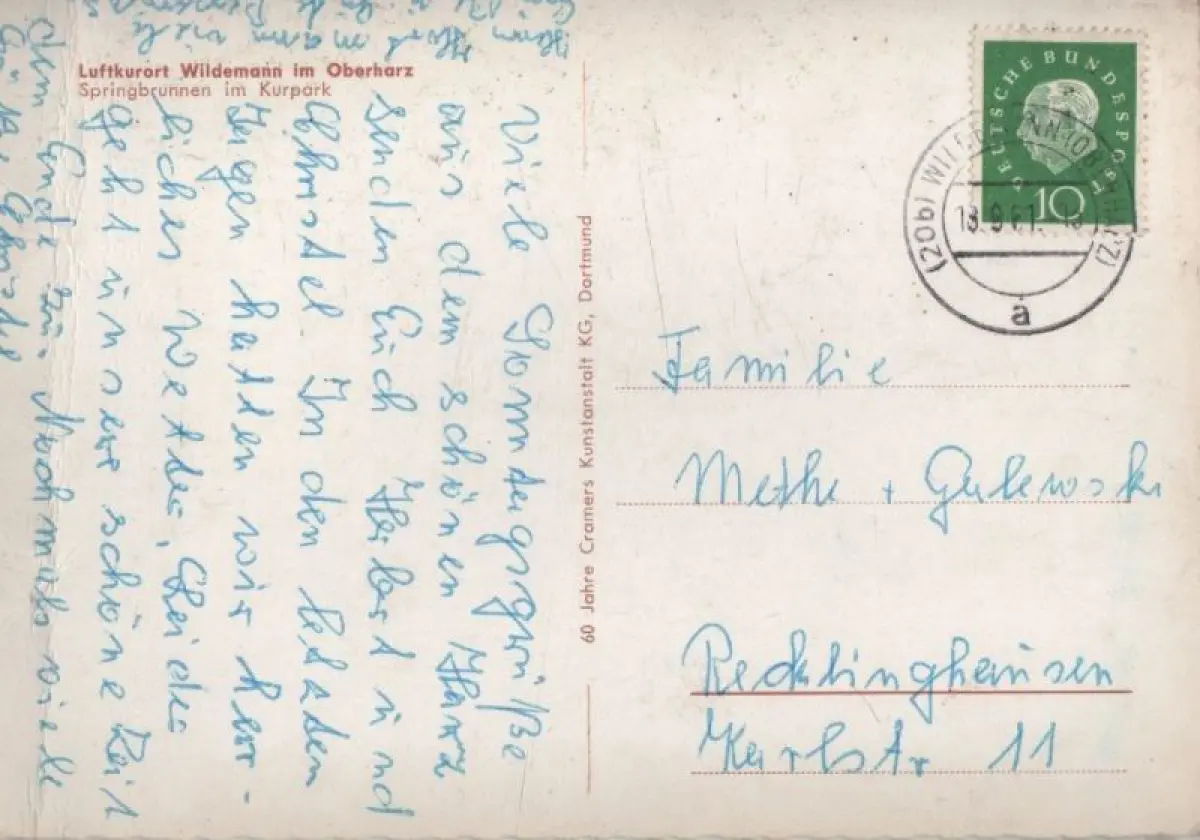 Luftkurort Wildemann im Oberharz
Springbrunnen im Kurpark
Viele Sonntagsgrüße
aus dem schönen Harz
senden Euch Herbert und
Christel In den letzten
Tagen hatten wir herr-
liches Wetter, Leider
geht unsere schöne Zeit
dem Ende zu. Nochmals viele
60 Jahre Cramers Kunstanstalt KG, Dortmund
DEUTSCHE BUNDESPOST
10
(20b) WILDEMANN (OBERHARZ)
18.9.61.-18
a
Familie
Methe + Galewski
Recklinghausen
Karlstr 11